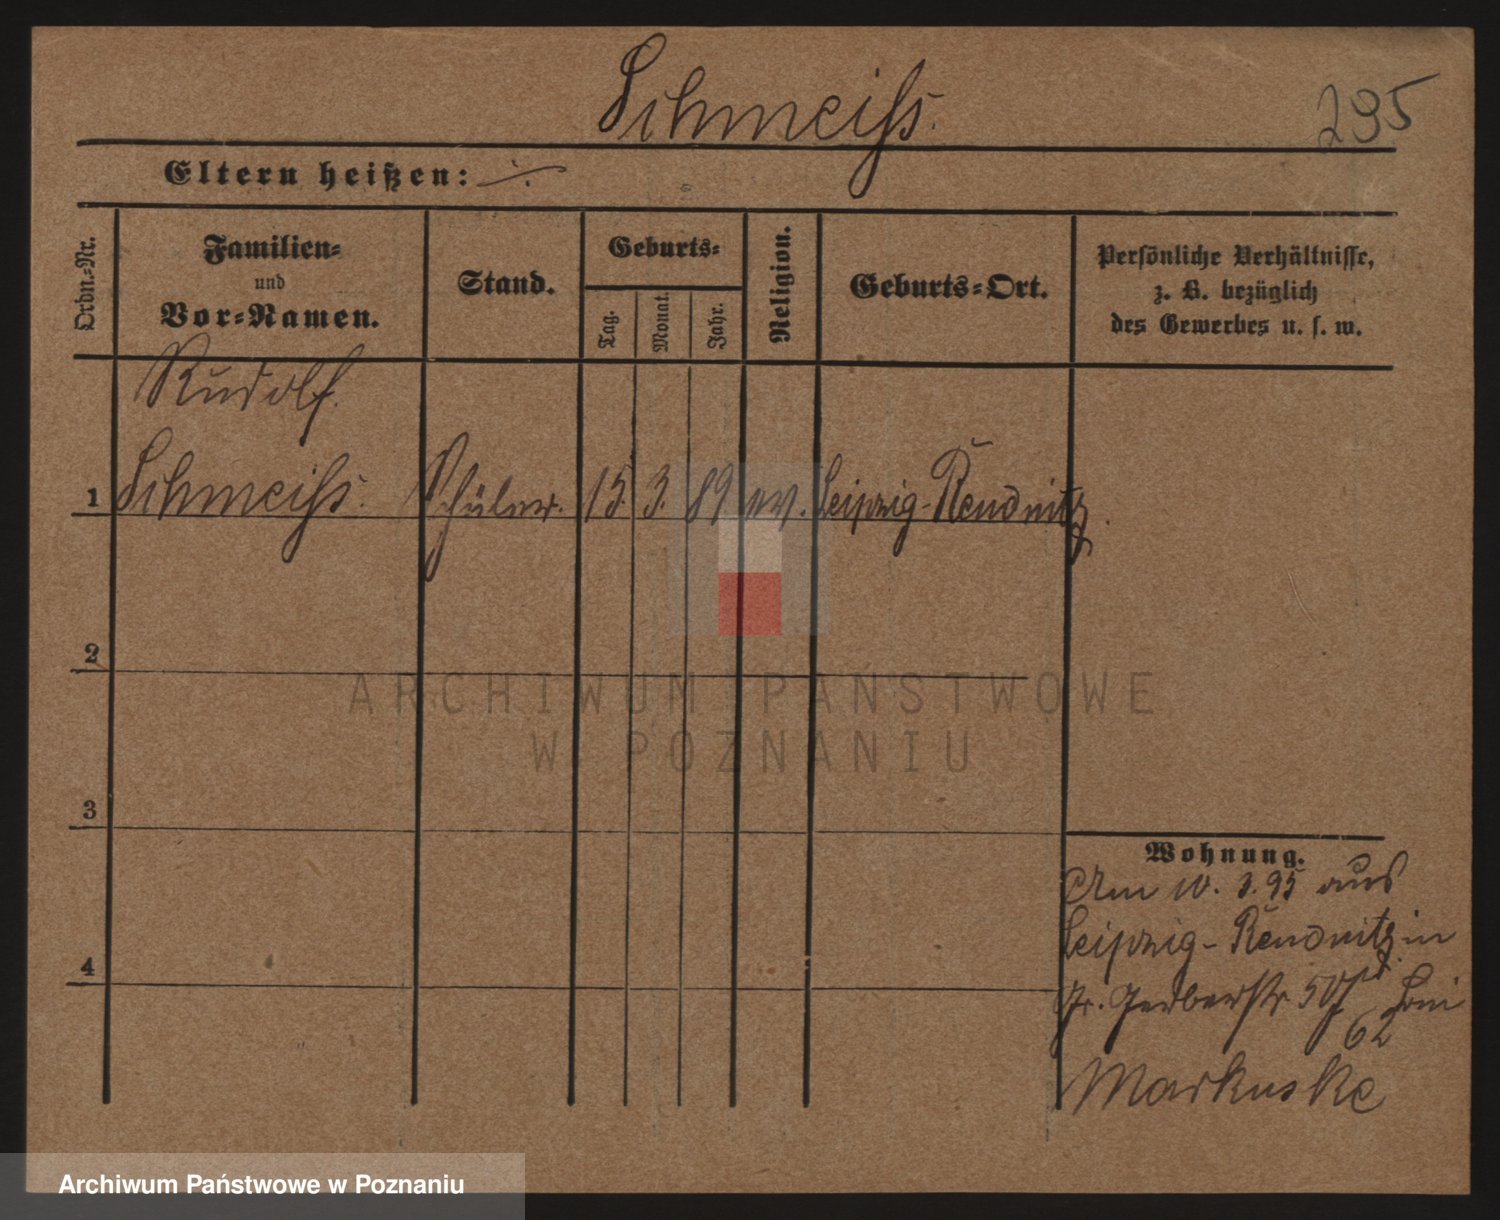 Schmeiss.
295
Eltern heißen: ·/·
Ordn.=Nr.
Familien=
und
Vor=Namen.
Stand.
Geburts=
Tag.
Monat.
Jahr.
Religion.
Geburts=Ort.
Persönliche Verhältnisse,
z. B. bezüglich
des Gewerbes u. s. w.
Rudolf
1 Schmeiss. Schüler. 15. 3. 89 ev. Leipzig-Reudnitz.
2
3
4
Wohnung.
Am 10. 3. 95 aus
Leipzig-Reudnitz in
Gr. Gerberstr 50 bei
62
Markuske
ARCHIWUM PAŃSTWOWE
W POZNANIU
Archiwum Państwowe w Poznaniu